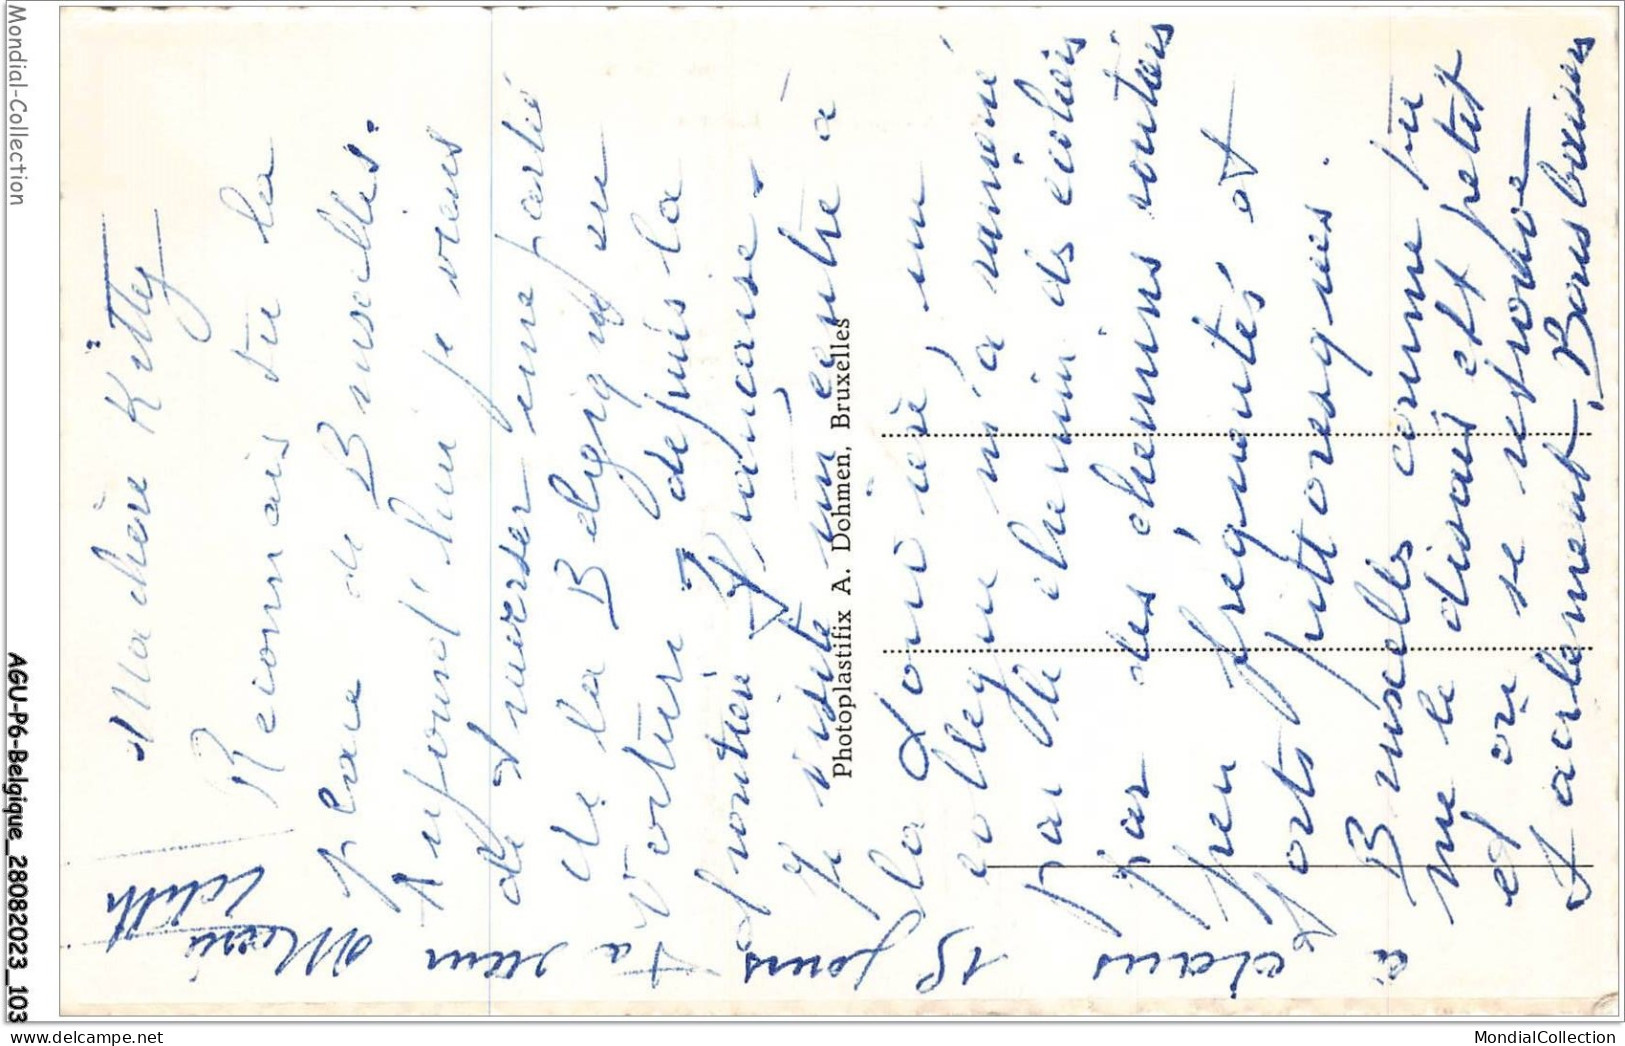 Ma chère Kitty
Reconnais tu la
place de Bruxelles.
Aujourd'hui je viens
de traverser une partie
de la Belgique en
voiture, depuis la
frontière Française.
Je visite un centre à
la Louvière, un
collegue m'a ramené
par le chemin des ecoliers
par des chemins
peu fréquentés et
forts pittoresques.
Bruxelles comme tu
me le disais est petit
et on se retrouve
facilement, Bons baisers
à
dans
15 jours
Ta sœur
Photoplastifix A. Dohmen, Bruxelles
Mondial-Collection
AGU-P6-Belgique_28082023_103
delcampe.net
MondialCollection